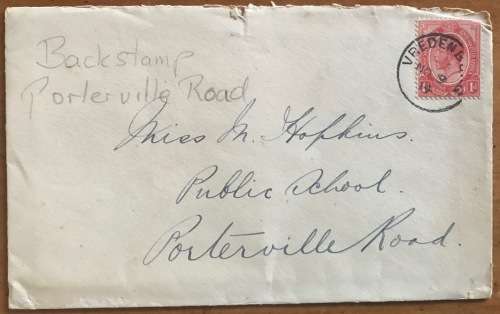 Backstamp
Porterville Road
Miss M. Hopkins.
Public School.
Porterville Road.